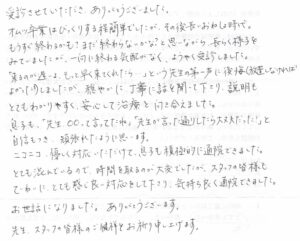 受診させていただき、ありがとうございました。
オムツ卒業はびっくりする程簡単でしたが、その後長〜おねしょ時代。
もうすぐ終わるかも?まだ終わらないかな?と思いながら、長らく様子を
みていましたが、一向に終わる気配がなく、ようやく受診しました。
「実るのが遅い、もっと早く来てくれたら…」という先生の第一声に後悔(放置しなければ
よかった)しましたが、穏やかに丁寧に話を聞いて下り、説明も
とてもわかりやすく、安心して治療と向き合えました。
息子も、"先生〇〇って言ってたね。"先生が言った通りしたら大丈夫だった!"と
自信もつき、頑張れたように思います。
ニコニコ、優しく対応いただけて、息子も積極的に通院できました。
とても混んでいるので、時間を取るのが大変でしたが、スタッフの皆様も
てきぱきと、とても感じ良い対応をして下り、気持ち良く通院できました。
お世話になりました。ありがとうございます。
先生、スタッフの皆様のご健祥をお祈り申し上げます。